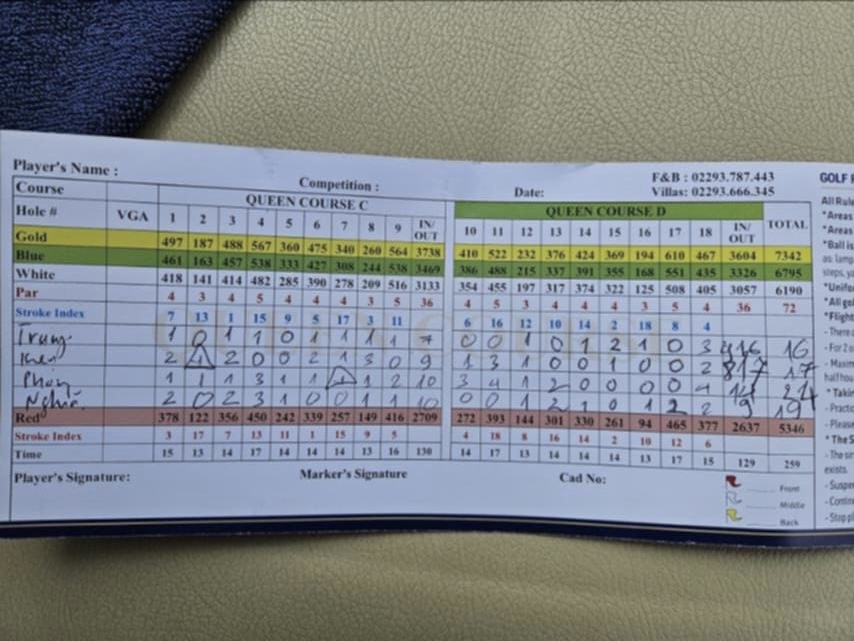 Player's Name :
Competition :
Date:
F&B : 02293.787.443
Villas: 02293.666.345
Course QUEEN COURSE C QUEEN COURSE D
Hole # VGA 1 2 3 4 5 6 7 8 9 IN/OUT 10 11 12 13 14 15 16 17 18 IN/OUT TOTAL
Gold 497 187 488 567 360 475 340 260 564 3738 410 522 232 376 424 369 194 610 467 3604 7342
Blue 461 163 457 538 333 427 308 244 538 3469 386 488 215 337 391 355 168 551 435 3326 6795
White 418 141 414 482 285 390 278 209 516 3133 354 455 197 317 374 322 125 508 405 3057 6190
Par 4 3 4 5 4 4 4 3 5 36 4 5 3 4 4 4 3 5 4 36 72
Stroke Index 7 13 1 15 9 5 17 3 11 6 16 12 10 14 2 18 8 4
Trung 1 0 1 1 0 1 1 1 1 7 0 0 1 0 1 2 1 0 3 16 16
2 2 0 0 2 1 3 0 9 1 3 1 0 0 1 0 0 2 8 17
1 1 1 3 1 1 1 2 10 3 4 1 2 0 0 0 0 4 14
2 0 2 3 1 0 0 1 1 10 0 0 1 2 1 0 1 2 2 9 19
Red 378 122 356 450 242 339 257 149 416 2709 272 393 144 301 330 261 94 465 377 2637 5346
Stroke Index 3 17 7 13 11 1 15 9 5 4 18 8 16 14 2 10 12 6
Time 15 13 14 17 14 14 14 13 16 130 14 17 13 14 14 14 13 17 15 129 259
Player's Signature:
Marker's Signature
Cad No:
Front
Middle
Back
GOLF
All Rul
"Areas
"Areas
"Ball is
"Flight
- For 2 o
* The S
exists.